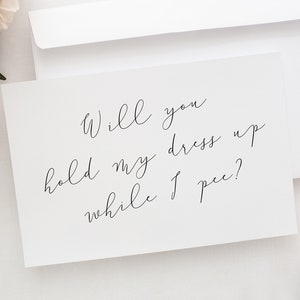 Will you
hold my dress up
while I pee?